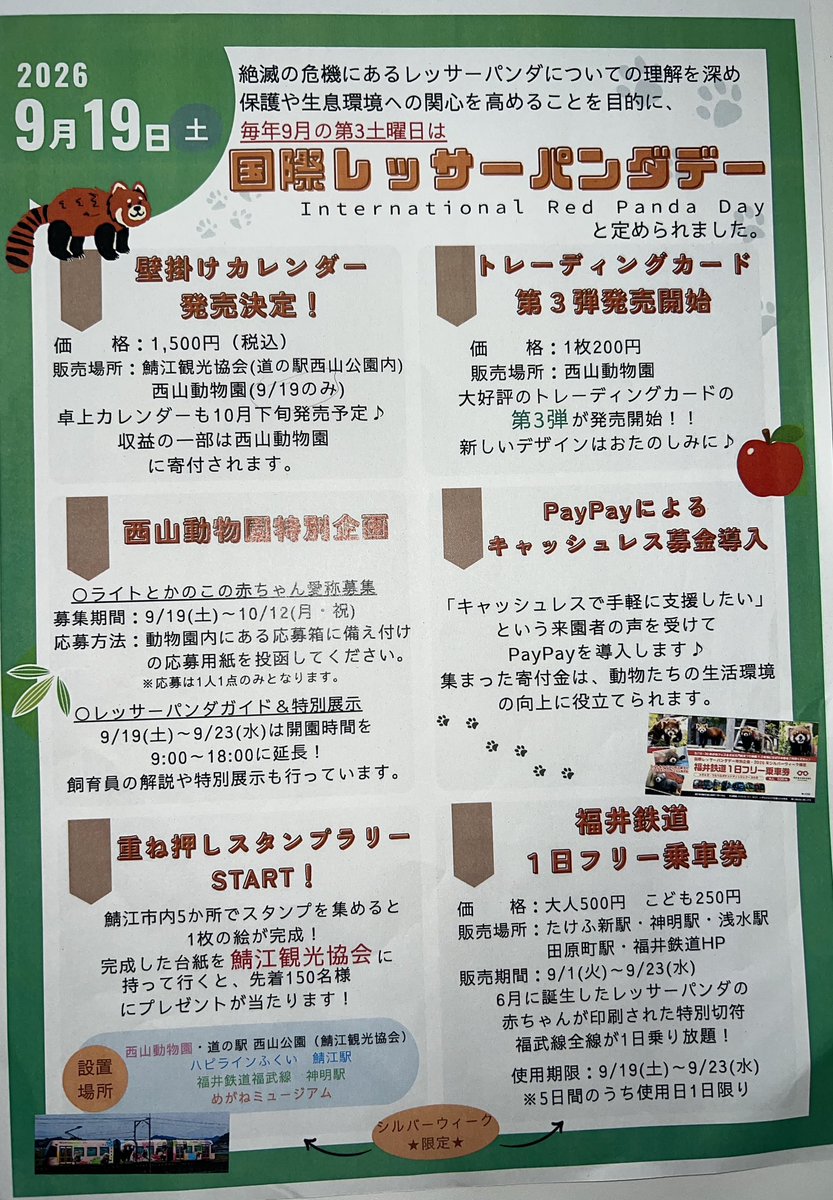 2026
9月19日 土
絶滅の危機にあるレッサーパンダについての理解を深め
保護や生息環境への関心を高めることを目的に、
毎年9月の第3土曜日は
国際レッサーパンダデー
International Red Panda Day
と定められました。
壁掛けカレンダー
発売決定！
価　　格：1,500円（税込）
販売場所：鯖江観光協会(道の駅西山公園内)
西山動物園(9/19のみ)
卓上カレンダーも10月下旬発売予定♪
収益の一部は西山動物園
に寄付されます。
トレーディングカード
第３弾発売開始
価　　格：1枚200円
販売場所：西山動物園
大好評のトレーディングカードの
第3弾が発売開始！！
新しいデザインはおたのしみに♪
西山動物園特別企画
〇ライトとかのこの赤ちゃん愛称募集
募集期間：9/19(土)～10/12(月・祝)
応募方法：動物園内にある応募箱に備え付け
の応募用紙を投函してください。
※応募は1人1点のみとなります。
〇レッサーパンダガイド＆特別展示
9/19(土)～9/23(水)は開園時間を
9:00～18:00に延長！
飼育員の解説や特別展示も行っています。
PayPayによる
キャッシュレス募金導入
「キャッシュレスで手軽に支援したい」
という来園者の声を受けて
PayPayを導入します♪
集まった寄付金は、動物たちの生活環境
の向上に役立てられます。
福井鉄道1日フリー乗車券
重ね押しスタンプラリー
START！
鯖江市内5か所でスタンプを集めると
1枚の絵が完成！
完成した台紙を鯖江観光協会に
持って行くと、先着150名様
にプレゼントが当たります！
設置
場所
西山動物園・道の駅 西山公園（鯖江観光協会)
ハピラインふくい　鯖江駅
福井鉄道福武線　神明駅
めがねミュージアム
福井鉄道
１日フリー乗車券
価　　格：大人500円　こども250円
販売場所：たけふ新駅・神明駅・浅水駅
田原町駅・福井鉄道HP
販売期間：9/1(火)～9/23(水)
6月に誕生したレッサーパンダの
赤ちゃんが印刷された特別切符
福武線全線が1日乗り放題！
使用期限：9/19(土)～9/23(水)
※5日間のうち使用日1日限り
シルバーウィーク
★限定★